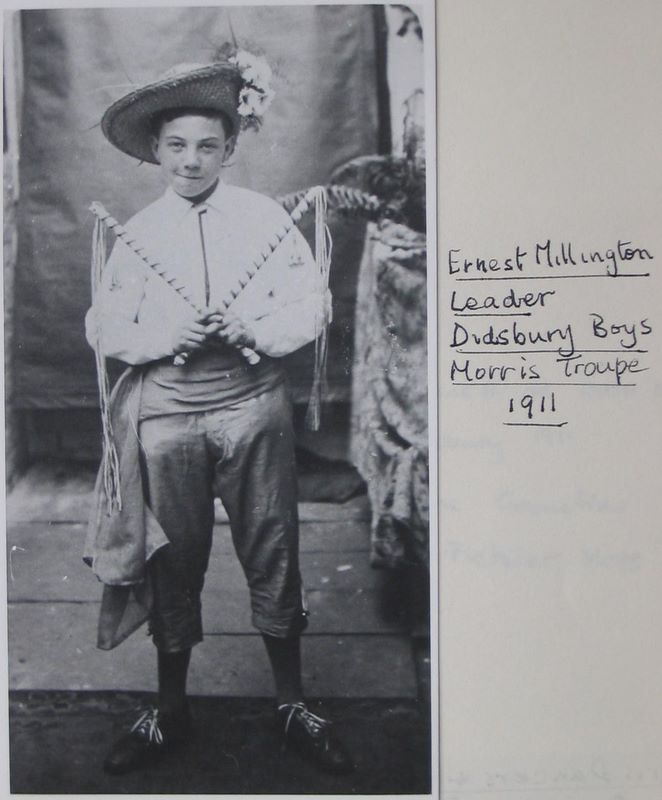 Ernest Millington
Leader
Didsbury Boys
Morris Troupe
1911